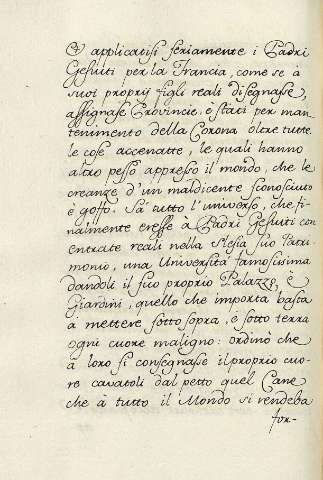 & applicatisi seriamente i Padri
Gesuiti per la Francia, come se à
suoi proprij figli reali disegnasse,
assignasse Provincie, è stati per man-
tenimento della Corona oltre tutte
le cose accenatte, le quali hanno
altro pesso appresso il mondo, che le
creanze d'un maldicente sconosciuto
è goffo. Sà tutto l'universo, che fi-
nalmente eresse à Padri Gesuiti con
entrate reali nella Flesia suo Patri-
monio, una Università famosissima
dandoli il suo proprio Palazzo, è
Giardini, quello che importa basta
à mettere sotto sopra, è sotto terra
ogni cuore maligno: ordinò che
à loro si consegnasse il proprio cuo-
re cavatoli dal petto quel Cane
che à tutto il Mondo si rendeba
for-